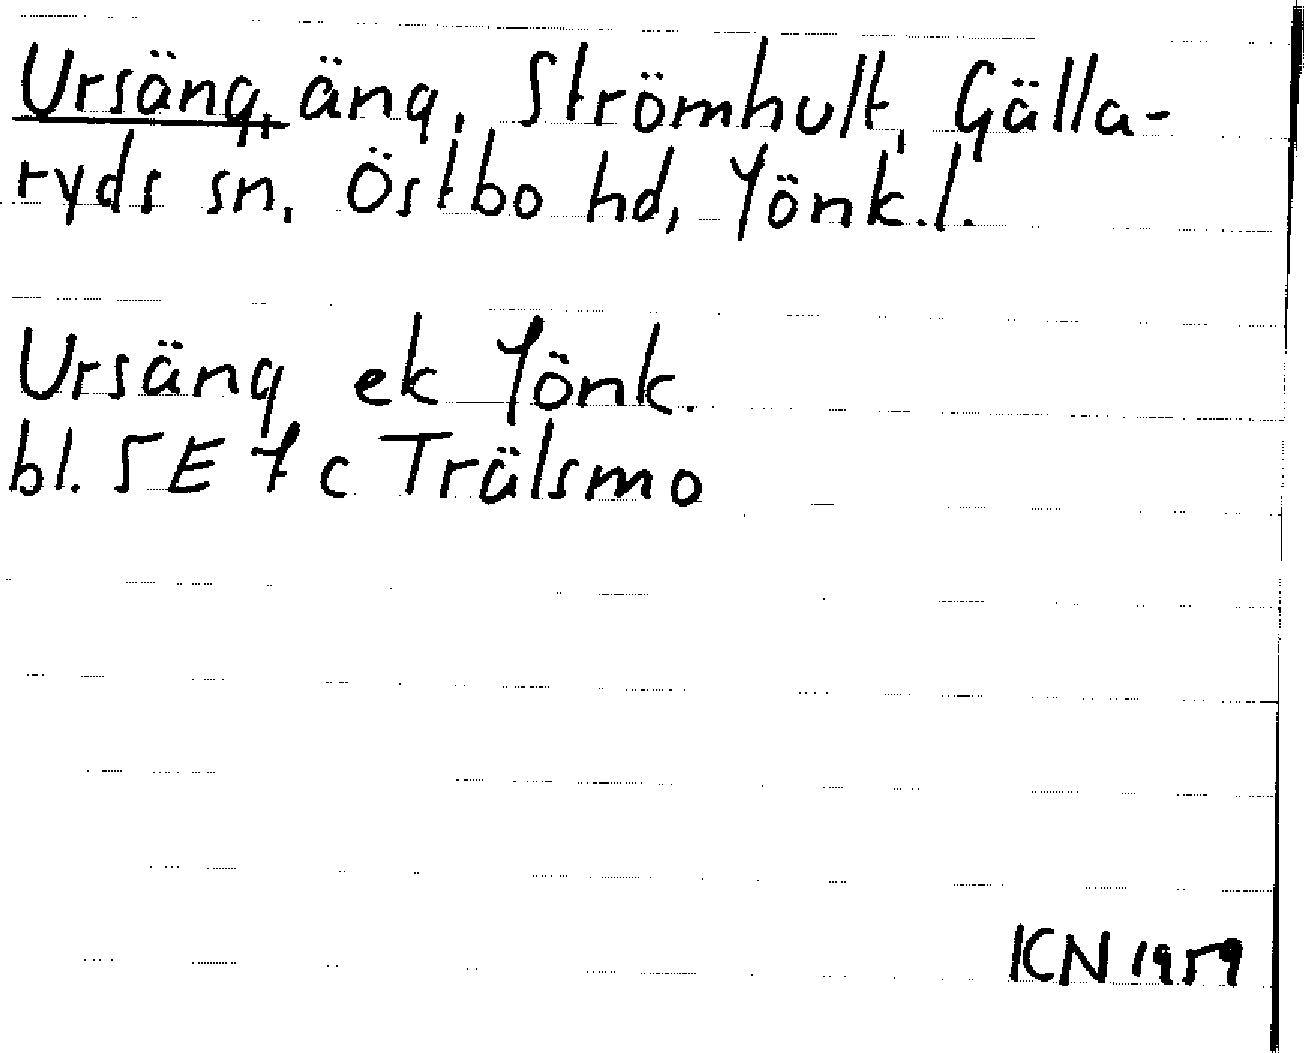 Ursäng, äng, Strömhult, Gälla-
ryds sn, Östbo hd, Jönk.l.
Ursäng ek Jönk.
bl. 5E 7c Trälsmo
ICN 1959